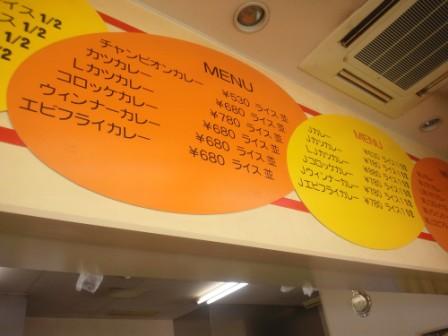 イス1/2
イス 1/2
ス 1/2
1/2
MENU
チャンピオンカレー ¥530 ライス並
カツカレー ¥680 ライス並
Lカツカレー ¥780 ライス並
コロッケカレー ¥680 ライス並
ウィンナーカレー ¥680 ライス並
エビフライカレー ¥680 ライス並
MENU
Jカレー
Jカツカレー
LJカツカレー
Jコロッケカレー ¥780 ライス1
Jウィンナーカレー ¥780 ライス1
Jエビフライカレー ¥780 ライス1